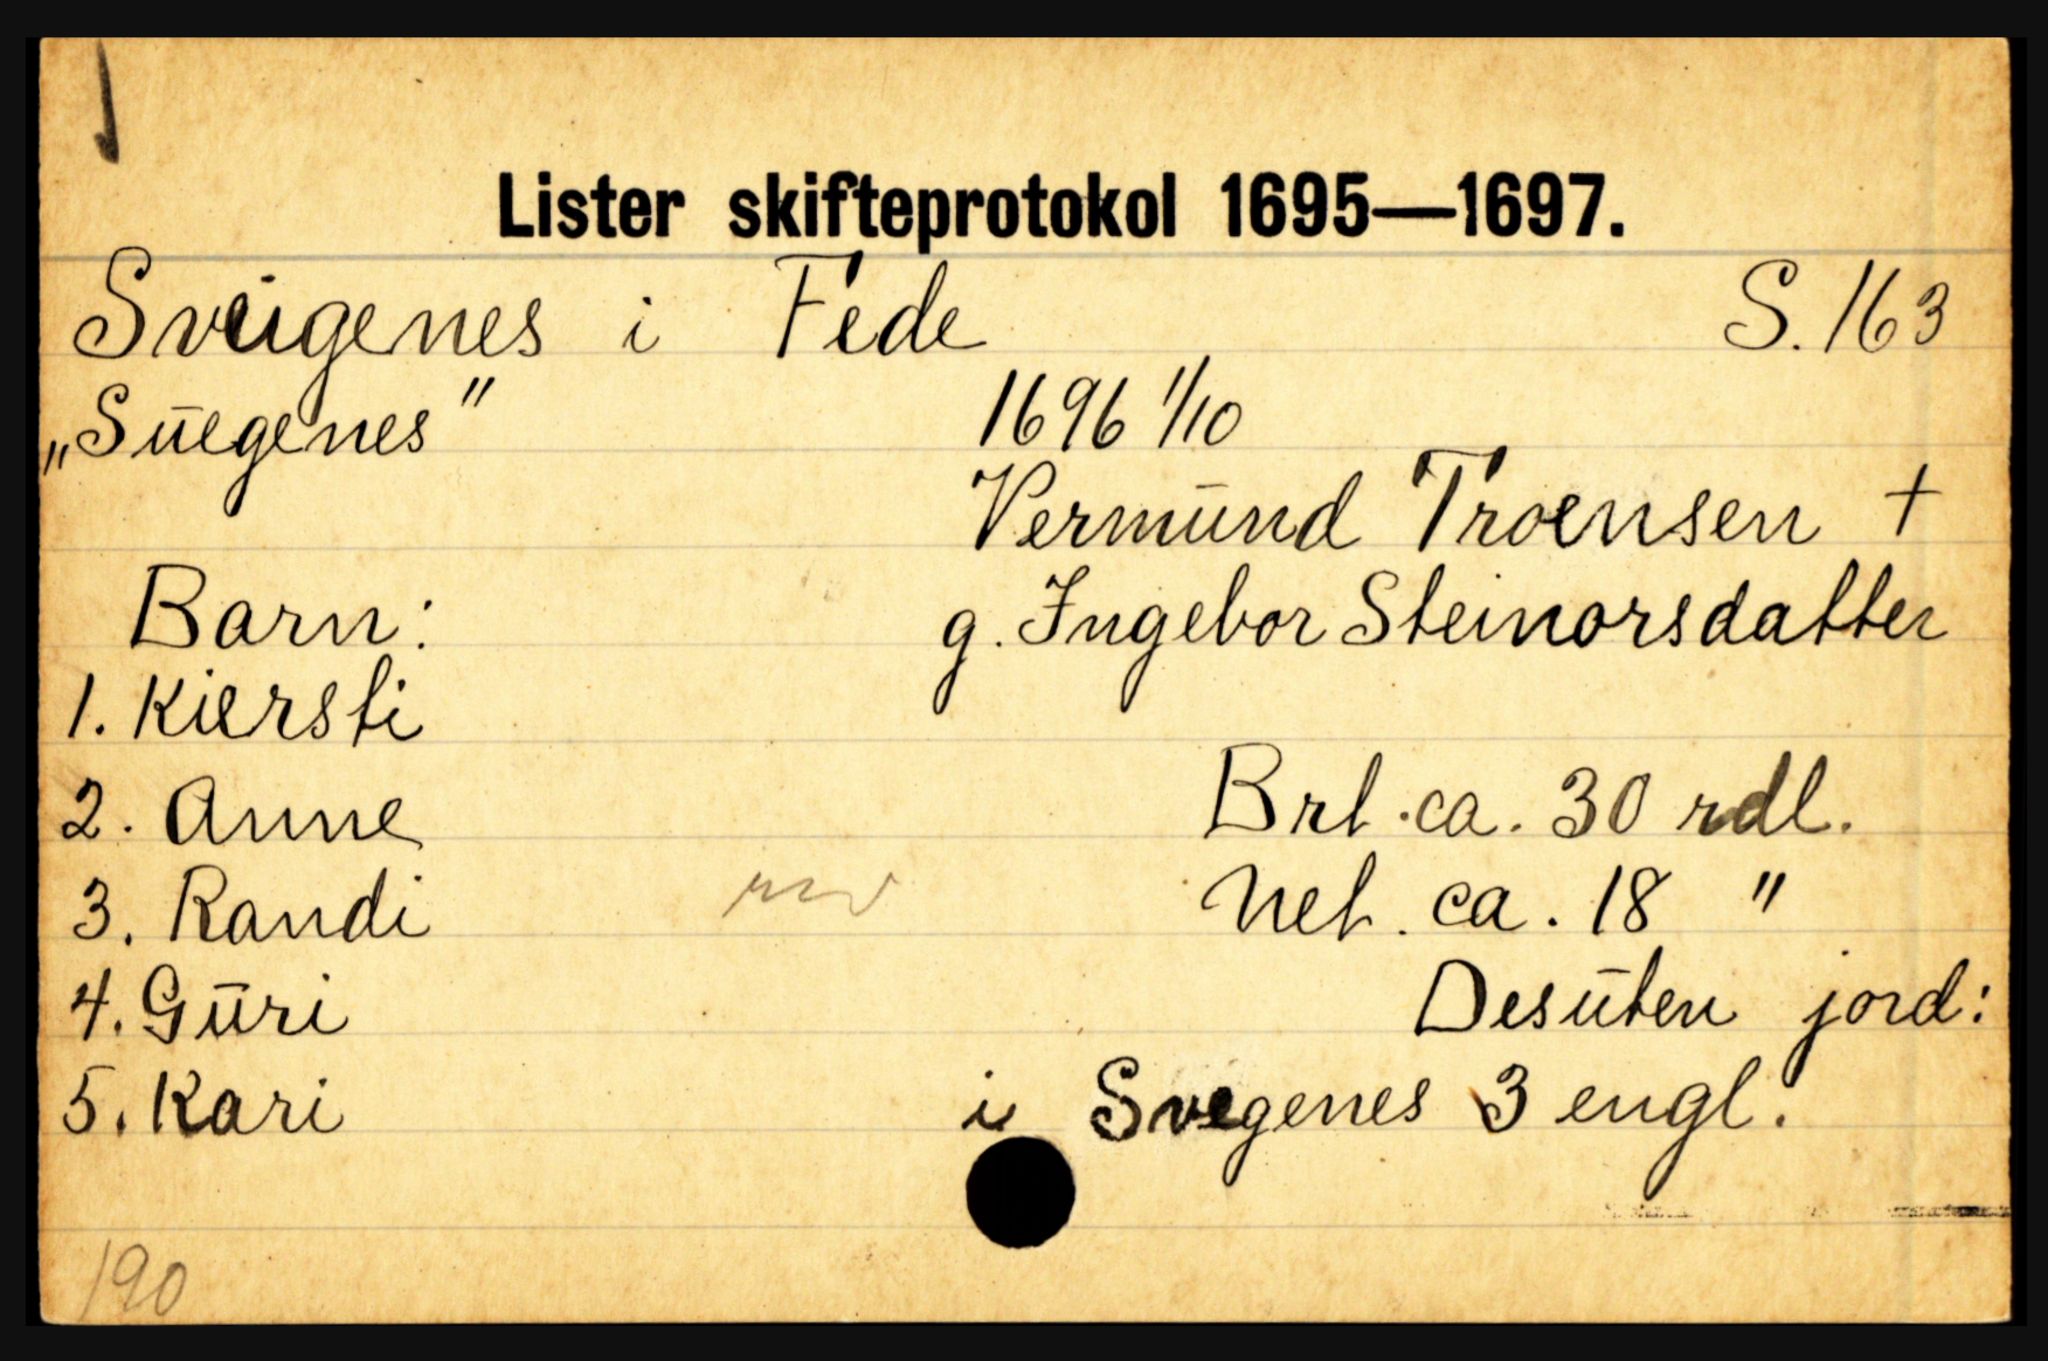 Lister skifteprotokol 1695—1697.
Sveigenes i Fede S. 163
„Suegenes" 1696 1/10
Vermund Troensen +
Barn: g. Ingebor Steinorsdatter
1. Kiersti
2. Anne Brt. ca. 30 rdl.
3. Randi Net. ca. 18 "
4. Guri Desuten jord:
5. Kari i Svegenes 3 engl.
190